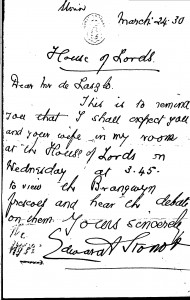 March. 24. 30
House of Lords.
Dear Mr de Laszlo.
This is to remind
you that I shall expect you
and your wife in my room
at the House of Lords on
Wednesday at 3.45.
to view the Brangwyn
frescoes and hear the debate
on them. Yours sincerely
The